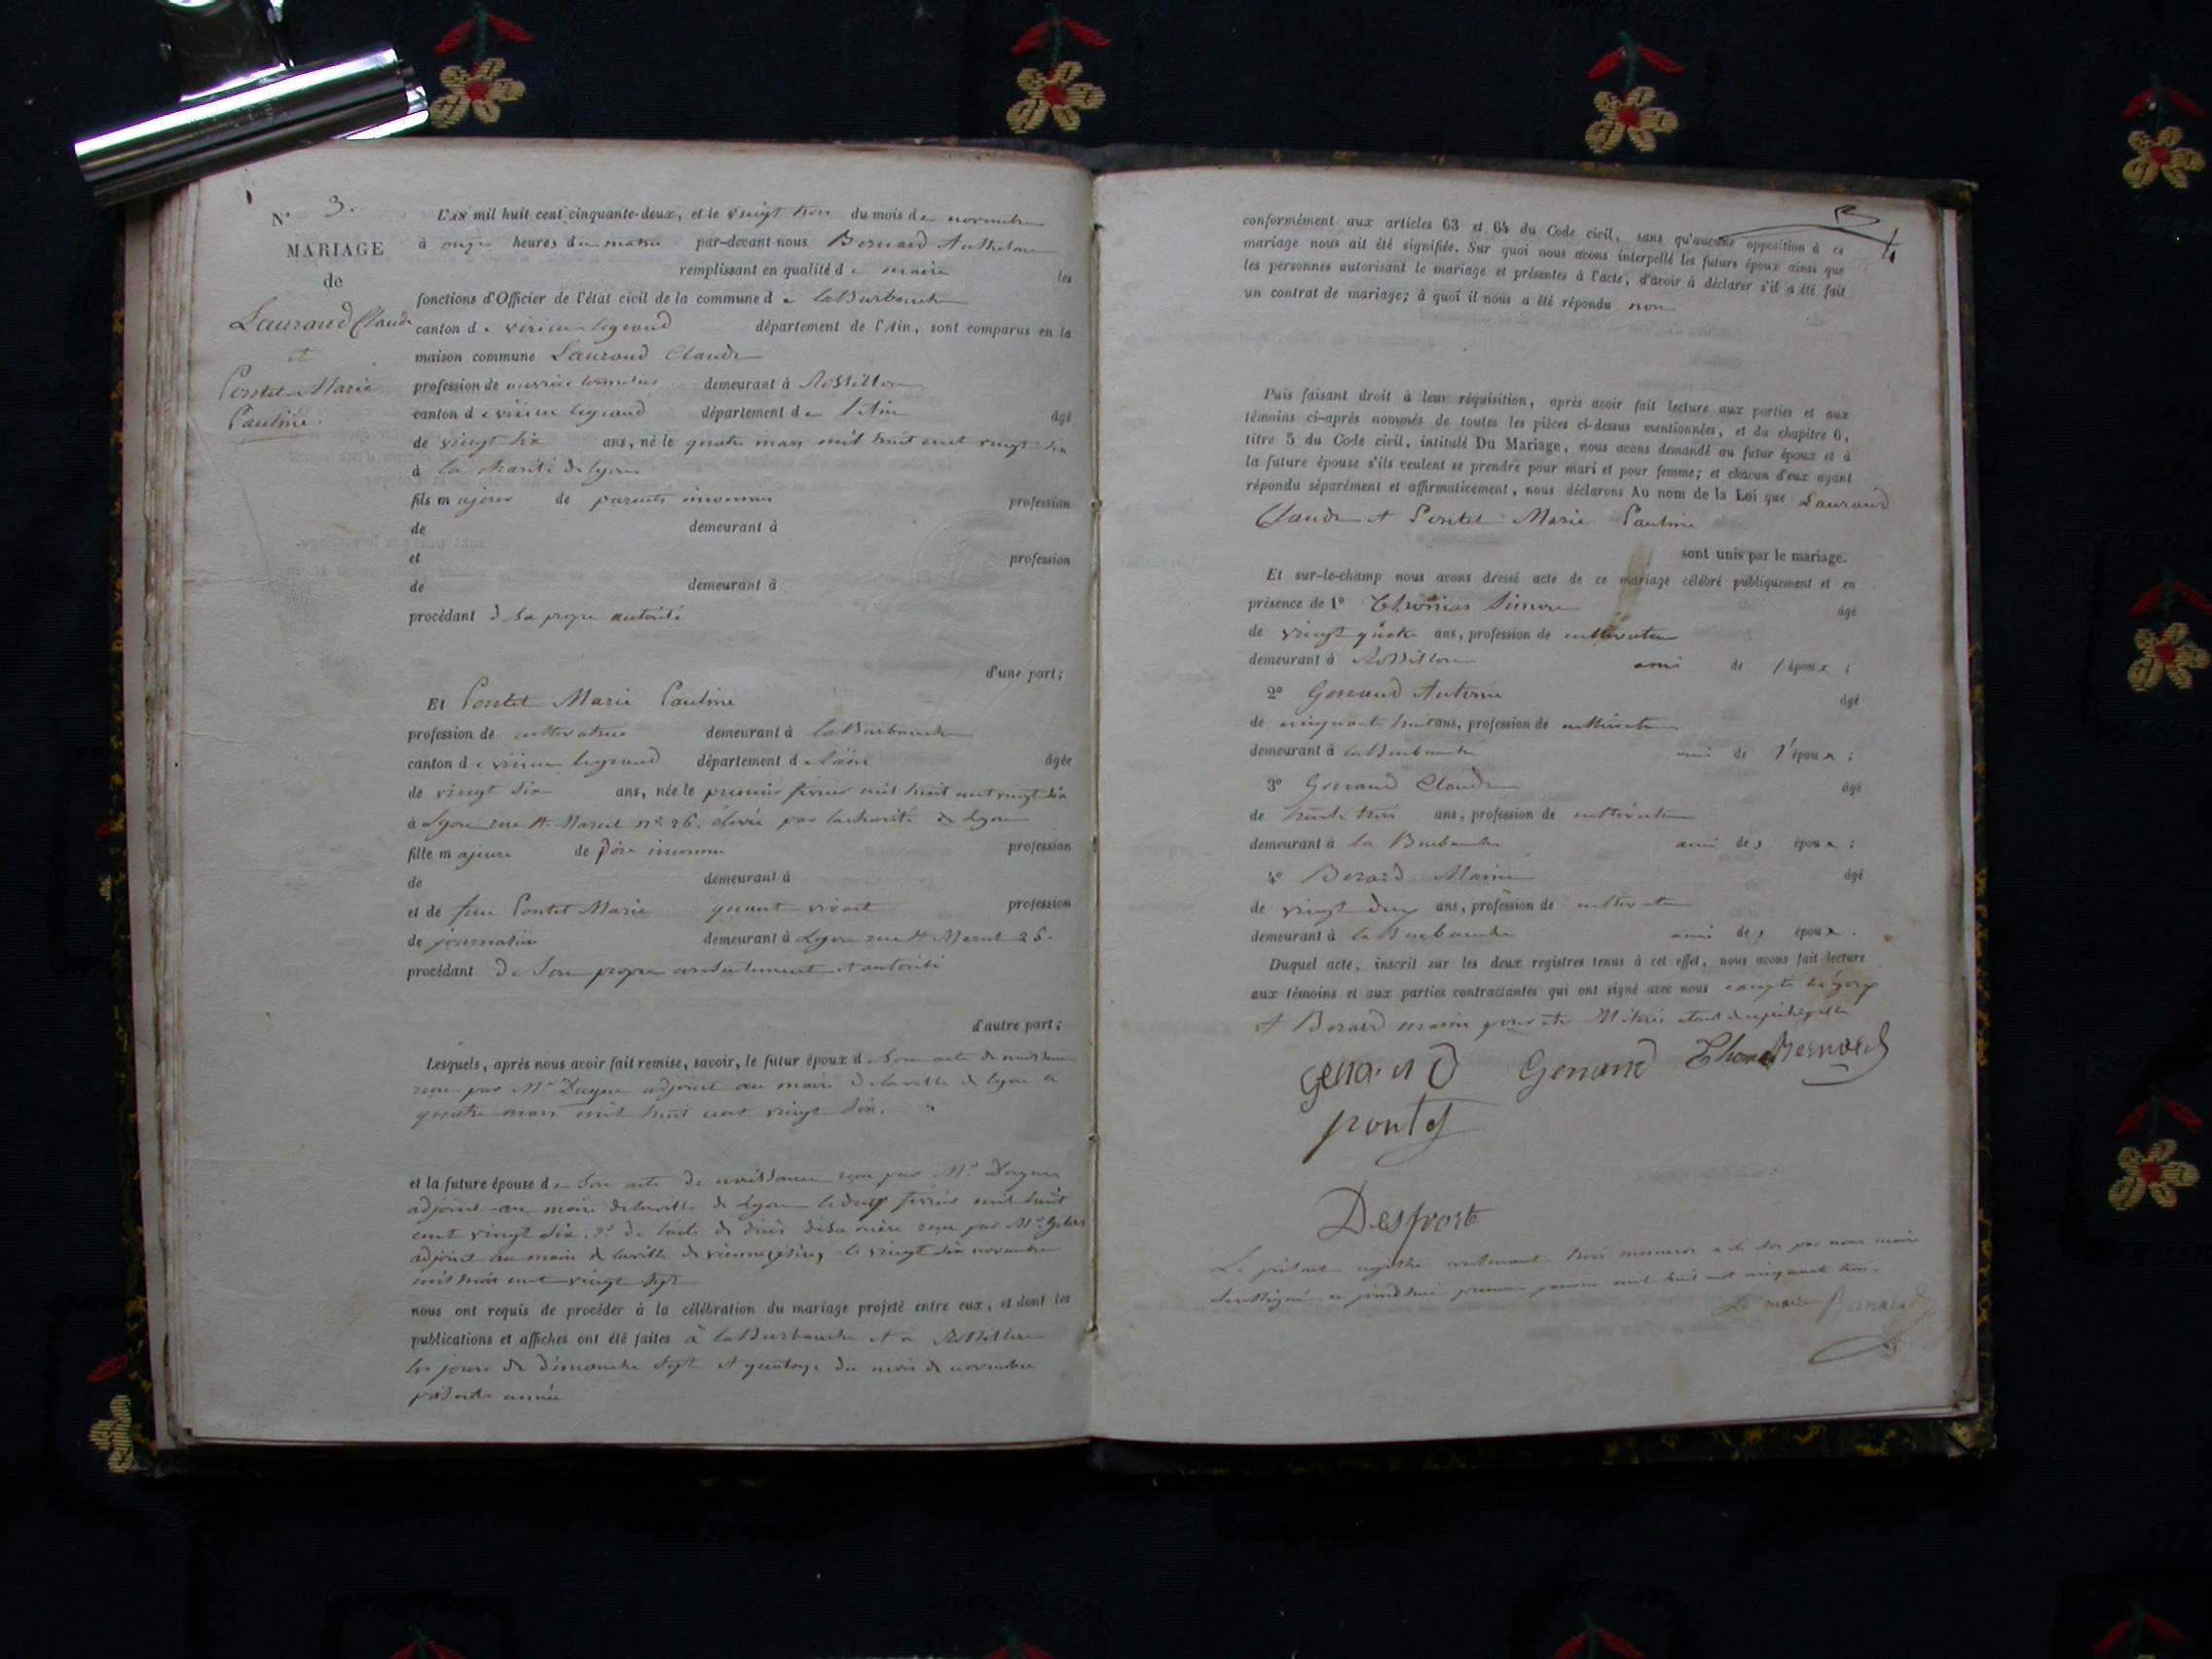 N° 3.
MARIAGE
de
Laurand Claude
et
Pontet Marie
Pauline.
L'AN mil huit cent cinquante-deux, et le vingt trois du mois de novembre
à onze heures du matin par-devant nous Bernard Anthelme
remplissant en qualité de maire les
fonctions d'Officier de l'état civil de la commune de laBurbanche
canton de virieu legrand département de l'Ain, sont comparus en la
maison commune Laurand Claude
profession de ouvrier demeurant à Rossillon
canton de virieu legrand département de l'Ain âgé
de vingt six ans, né le quatre mars mil huit cent vingt six
à la charité de lyon
fils majeur de parents inconnus profession
de demeurant à
et profession
de demeurant à
procédant de sa propre autorité
d'une part;
Et Pontet Marie Pauline
profession de cultivatrice demeurant à laBurbanche
canton de virieu legrand département de l'ain âgée
de vingt six ans, née le premier février mil huit cent vingt six
à Lyon rue St Marcel n° 26. élevée par la charité de Lyon
fille majeure de père inconnu profession
de demeurant à
et de feue Pontet Marie quant vivait profession
de journalière demeurant à Lyon rue St Marcel 26.
procédant de son propre consentement et autorité
d'autre part;
Lesquels, après nous avoir fait remise, savoir, le futur époux de son acte de naissance
reçu par Mr adjoint au maire de la ville de lyon le
quatre mars mil huit cent vingt six.
et la future épouse de son acte de naissance reçu par Mr
adjoint au maire de la ville de Lyon le deux février mil huit
cent vingt six. 2° de l'acte de décès de sa mère reçu par Mr
adjoint au maire de la ville de vienne (isère) le vingt six novembre
mil huit cent vingt sept
nous ont requis de procéder à la célébration du mariage projeté entre eux, et dont les
publications et affiches ont été faites à laBurbanche et à Rossillon
les jours de dimanche sept et quatorze du mois de novembre
présente année
conformément aux articles 63 et 64 du Code civil, sans qu'aucune opposition à ce
mariage nous ait été signifiée. Sur quoi nous avons interpellé les futurs époux ainsi que
les personnes autorisant le mariage et présentes à l'acte, d'avoir à déclarer s'il a été fait
un contrat de mariage; à quoi il nous a été répondu non
Puis faisant droit à leur réquisition, après avoir fait lecture aux parties et aux
témoins ci-après nommés de toutes les pièces ci-dessus mentionnées, et du chapitre 6,
titre 5 du Code civil, intitulé Du Mariage, nous avons demandé au futur époux et à
la future épouse s'ils veulent se prendre pour mari et pour femme; et chacun d'eux ayant
répondu séparément et affirmativement, nous déclarons Au nom de la Loi que Laurand
Claude et Pontet Marie Pauline
sont unis par le mariage.
Et sur-le-champ nous avons dressé acte de ce mariage célébré publiquement et en
présence de 1° Thomas Simon âgé
de vingt quatre ans, profession de cultivateur
demeurant à Rossillon ami de l'époux;
2° Genand Antoine âgé
de cinquante huit ans, profession de cultivateur
demeurant à laBurbanche ami de l'époux;
3° Genand Claude âgé
de trente trois ans, profession de cultivateur
demeurant à la Burbanche ami des époux;
4° Berard Marin âgé
de vingt deux ans, profession de cultivateur
demeurant à laBurbanche ami des époux.
Duquel acte, inscrit sur les deux registres tenus à cet effet, nous avons fait lecture
aux témoins et aux parties contractantes qui ont signé avec nous excepté l'époux
et Berard marin pour être illitérés
genand Genand Thomas Bernard
pontet
Desporte
Le présent registre contenant trois numeros a été clos par nous maire
soussigné ce jourdhui premier janvier mil huit cent cinquante trois.
Le maire Bernard